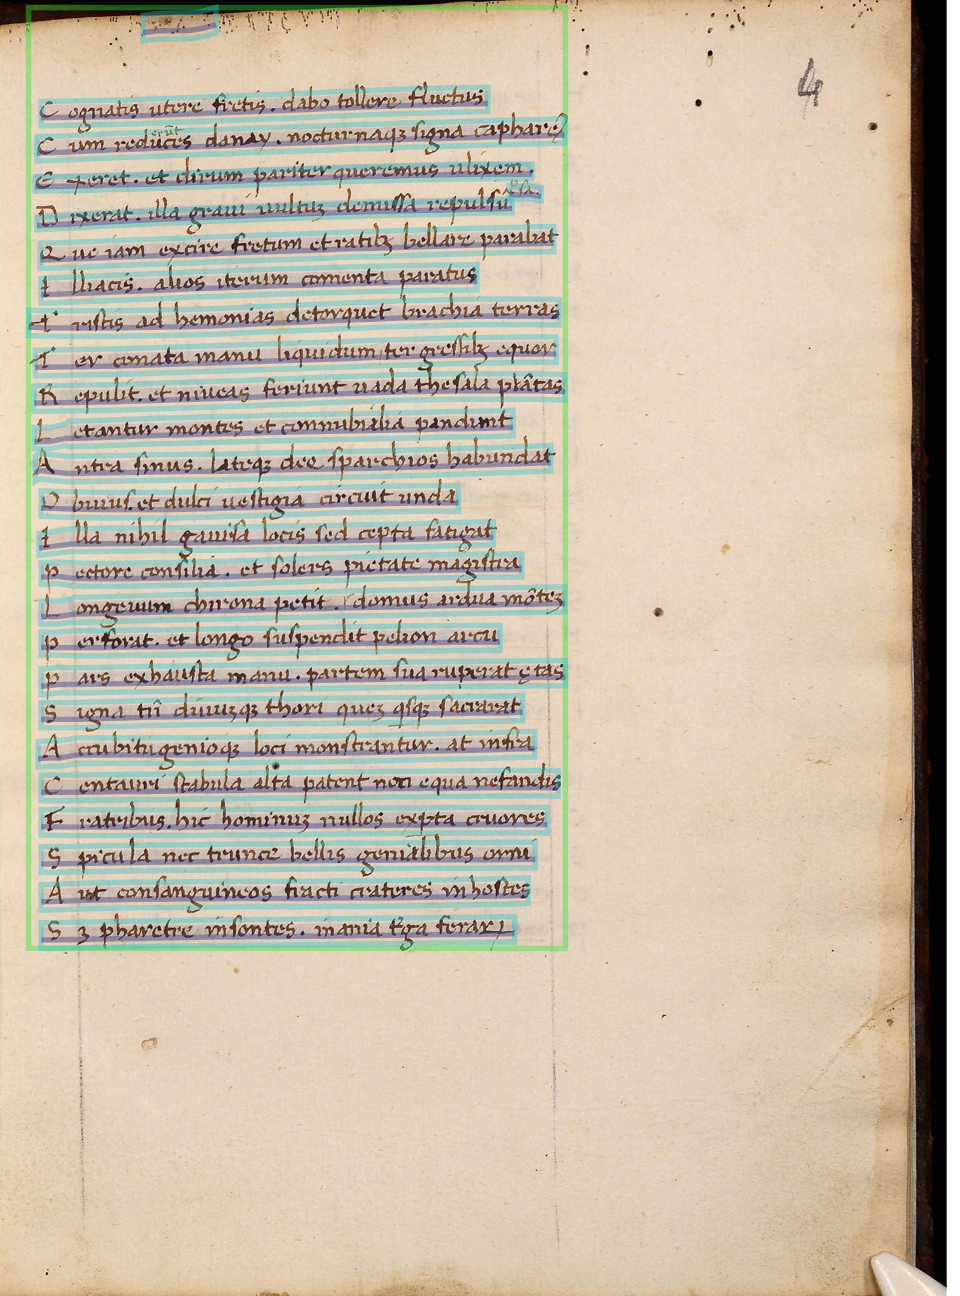 4
C ognatis utere fretis . dabo tollere fluctus
C um reduces danaꝝ . nocturnaqꝫ signa caphareꝫ
erūt
E xeret . et dirum pariter queremus ulixem .
D ixerat . illa graui uultuꝫ demissa repulsū
Q ue iam excire fretum et ratibꝫ bellare parabat
I lliacis . alios iterum comenta paratus
T ristis ad hemonias detorquet brachia terras
T er conata manu liquidum ter gressibꝫ equor
R epulit . et niueas feriunt uada thesala plātas
L etantur montes et connubialia pandunt
A ntra sinus . lateqꝫ deę sparchios habundat
O buius . et dulci uestigia circuit unda
I lla nihil gauisa locis sed cepta fatigat
P ectore consilia . et solers pietate magistra
L ongeuum chirona petit . domus ardua mōteꝫ
P erforat . et longo suspendit pelion arcu
P ars exhausta manu . partem sua ruperat ętas
S igna tn̄ diuuꝫqꝫ thori queꝫ qͥsqꝫ sacrarat
A ccubitu genioqꝫ loci monstrantur . at infra
C entauri stabula alta patent non equa nefandis
F ratribus . hic hominuꝫ nullos expta cruores
S picula nec truncę bellis genialibus orni
A ut consanguineos fracti crateres in hostes
S ꝫ pharetre insontes . inania t'ga feraꝝ